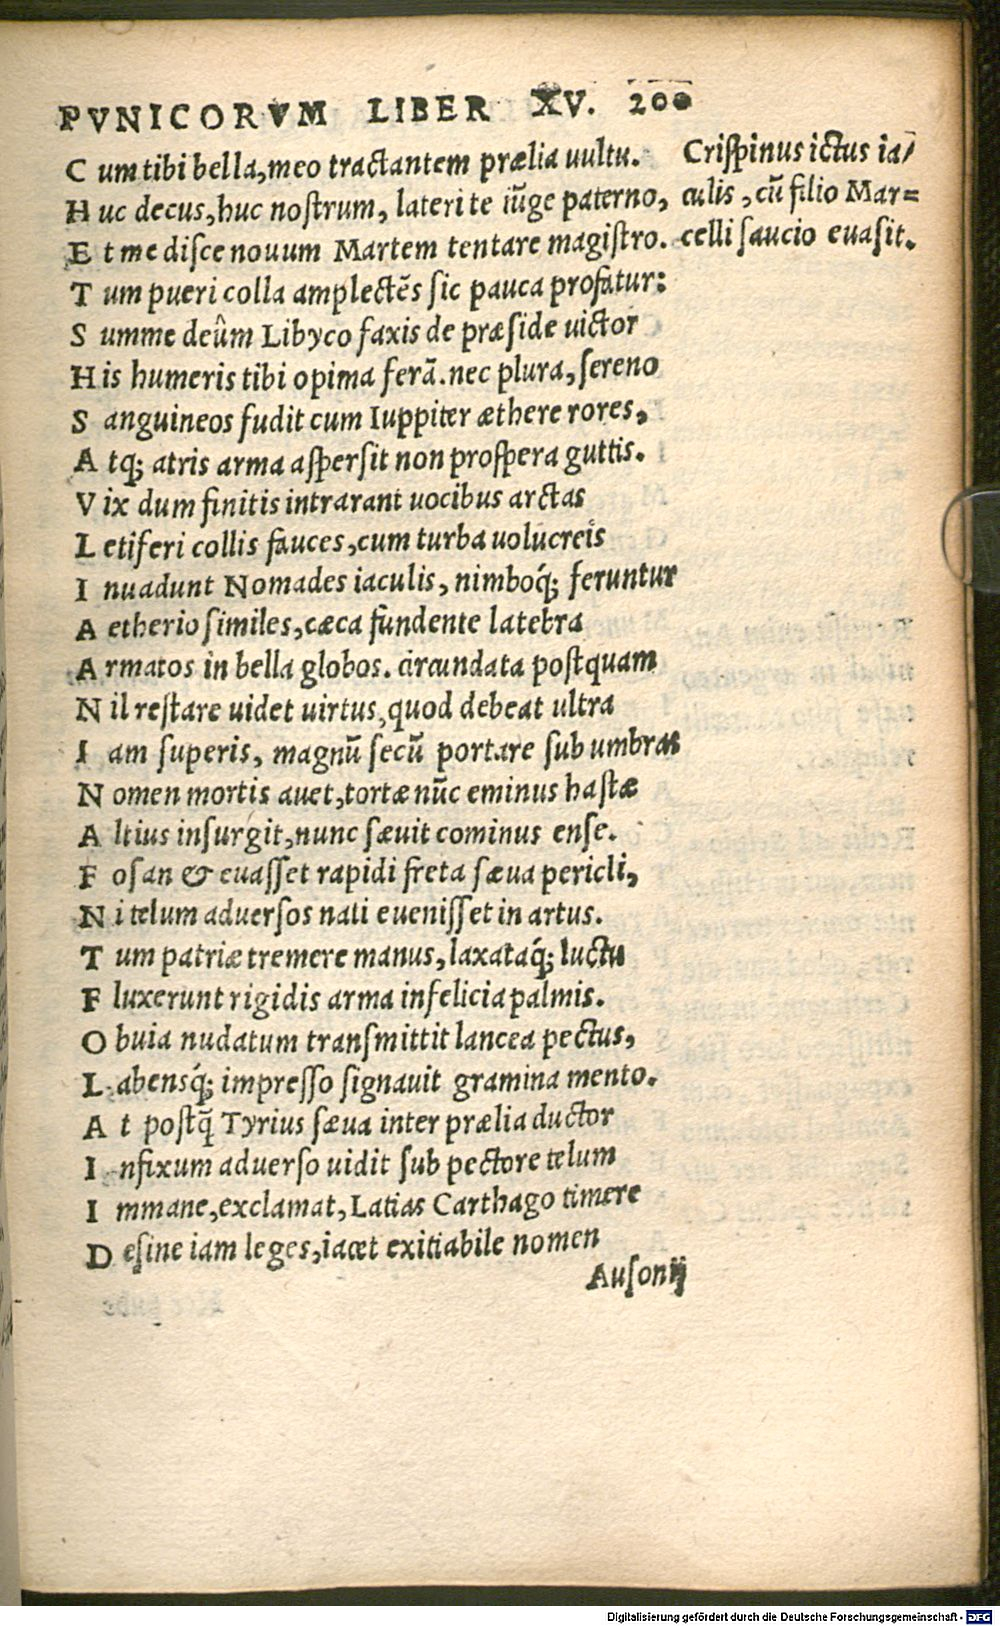 PVNICORVM LIBER XV. 200
C um tibi bella, meo tractantem prælia uultu.
H uc decus, huc nostrum, lateri te iũge paterno,
E t me disce nouum Martem tentare magistro.
Crispinus ictus ia/
culis, cũ filio Mar=
celli saucio euasit.
T um pueri colla amplectẽs sic pauca profatur:
S umme deûm Libyco faxis de præside uictor
H is humeris tibi opima ferã. nec plura, sereno
S anguineos fudit cum Iuppiter æthere rores,
A tq; atris arma aspersit non prospera guttis.
V ix dum finitis intrarant uocibus arctas
L etiferi collis fauces, cum turba uolucreis
I nuadunt Nomades iaculis, nimboq́; feruntur
A etherio similes, cæca fundente latebra
A rmatos in bella globos. circundata postquam
N il restare uidet uirtus, quod debeat ultra
I am superis, magnũ secũ portare sub umbras
N omen mortis auet, tortæ nũc eminus hastæ
A ltius insurgit, nunc sæuit cominus ense.
F osan & euasset rapidi freta sæua pericli,
N i telum aduersos nati euenisset in artus.
T um patriæ tremere manus, laxataq́; luctu
F luxerunt rigidis arma infelicia palmis.
O buia nudatum transmittit lancea pectus,
L abensq́; impresso signauit gramina mento.
A t postq̃ Tyrius sæua inter prælia ductor
I nfixum aduerso uidit sub pectore telum
I mmane, exclamat, Latias Carthago timere
D esine iam leges, iacet exitiabile nomen
Ausonij
Digitalisierung gefördert durch die Deutsche Forschungsgemeinschaft - DFG